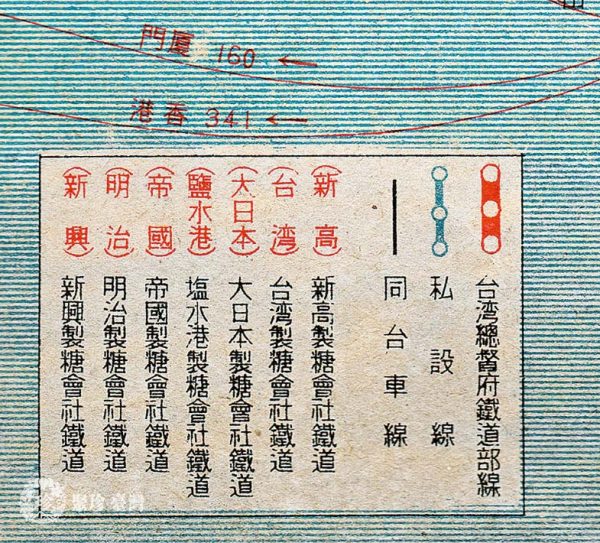 門厦 160 ←
港香 341 ←
台湾總督府鐵道部線
私設線
同台車線
(新高) 新高製糖會社鐵道
(台湾) 台湾製糖會社鐵道
(大日本) 大日本製糖會社鐵道
(鹽水港) 塩水港製糖會社鐵道
(帝國) 帝國製糖會社鐵道
(明治) 明治製糖會社鐵道
(新興) 新興製糖會社鐵道
聚珍臺灣